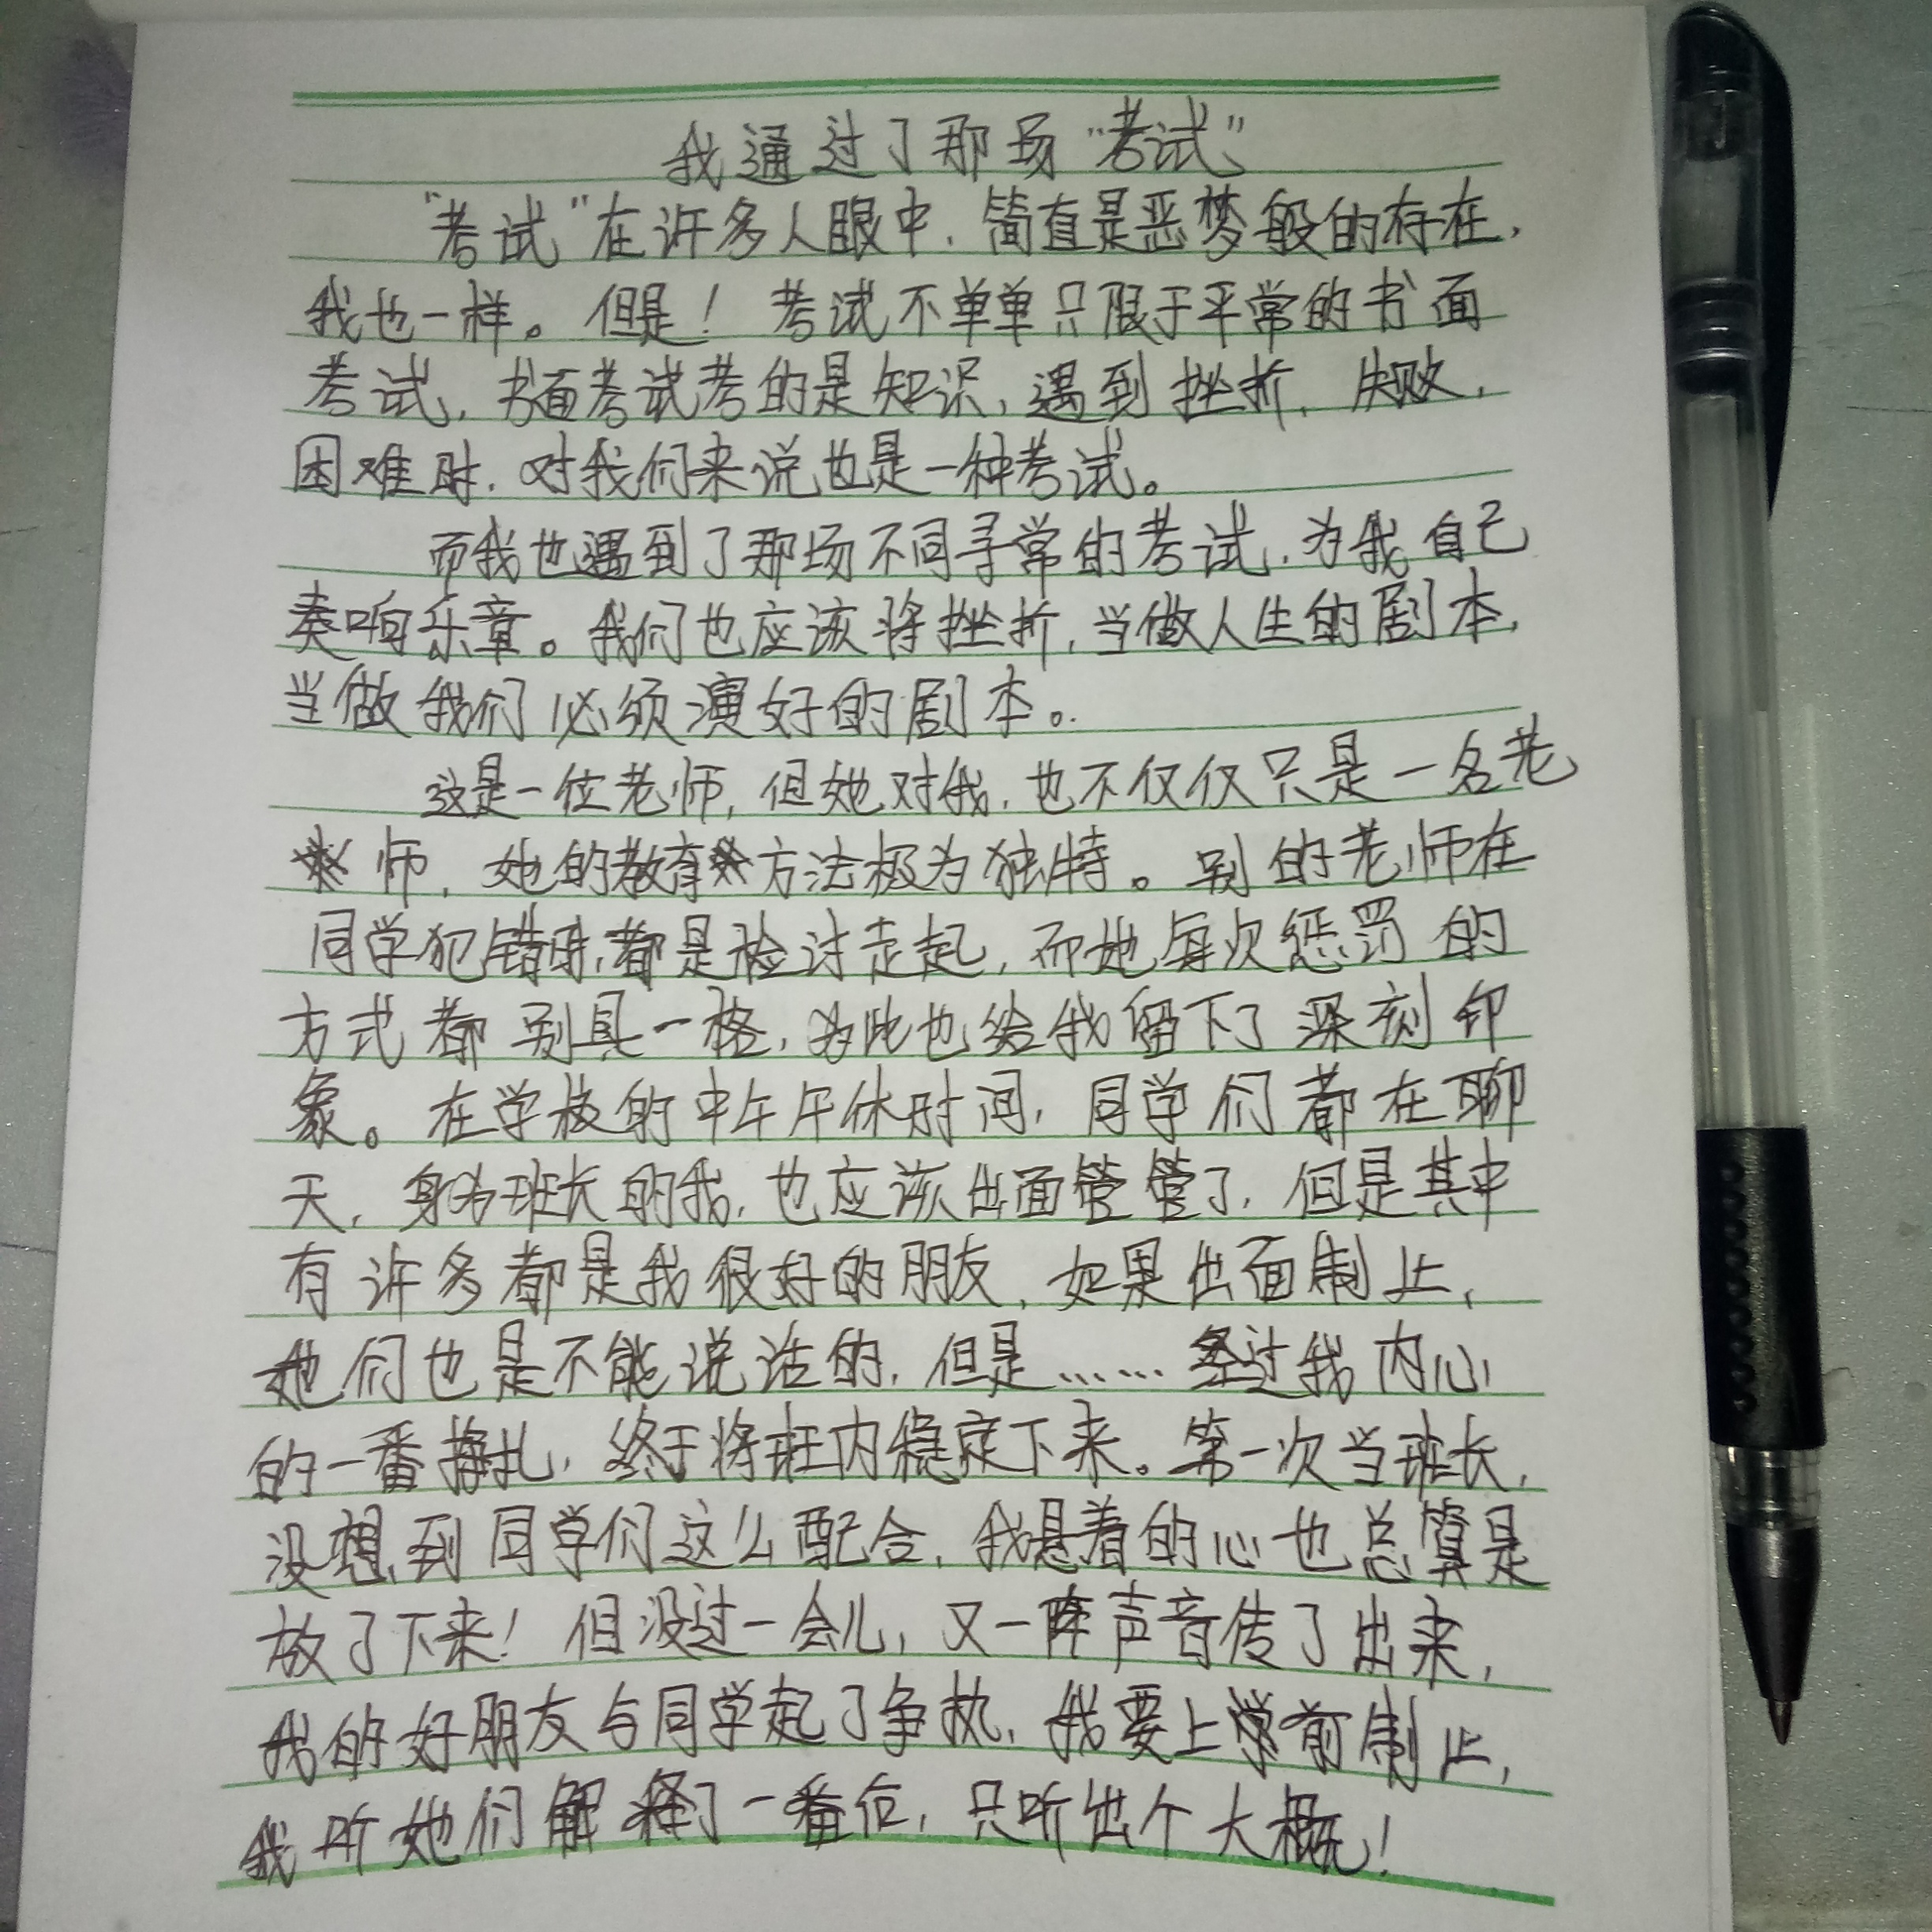 我通过了那场“考试”
“考试”在许多人眼中，简直是恶梦般的存在，
我也一样。但是！考试不单单只限于平常的书面
考试，书面考试考的是知识，遇到挫折，失败，
困难时，对我们来说也是一种考试。
而我也遇到了那场不同寻常的考试，为我自己
奏响乐章。我们也应该将挫折，当做人生的剧本，
当做我们必须演好的剧本。
这是一位老师，但她对我，也不仅仅只是一名老
师，她的教育方法极为独特。别的老师在
同学犯错时，都是检讨走起，而她每次惩罚的
方式都别具一格，为此也给我留下了深刻印
象。在学校的中午午休时间，同学们都在聊
天，身为班长的我，也应该出面管管了，但是其中
有许多都是我很好的朋友，如果出面制止，
她们也是不能说话的，但是……经过我内心
的一番挣扎，终于将班内稳定下来。第一次当班长，
没想到同学们这么配合，我悬着的心也总算是
放了下来！但没过一会儿，又一阵声音传了出来，
我的好朋友与同学起了争执，我要上前制止，
我听她们解释了一番后，只听出个大概！